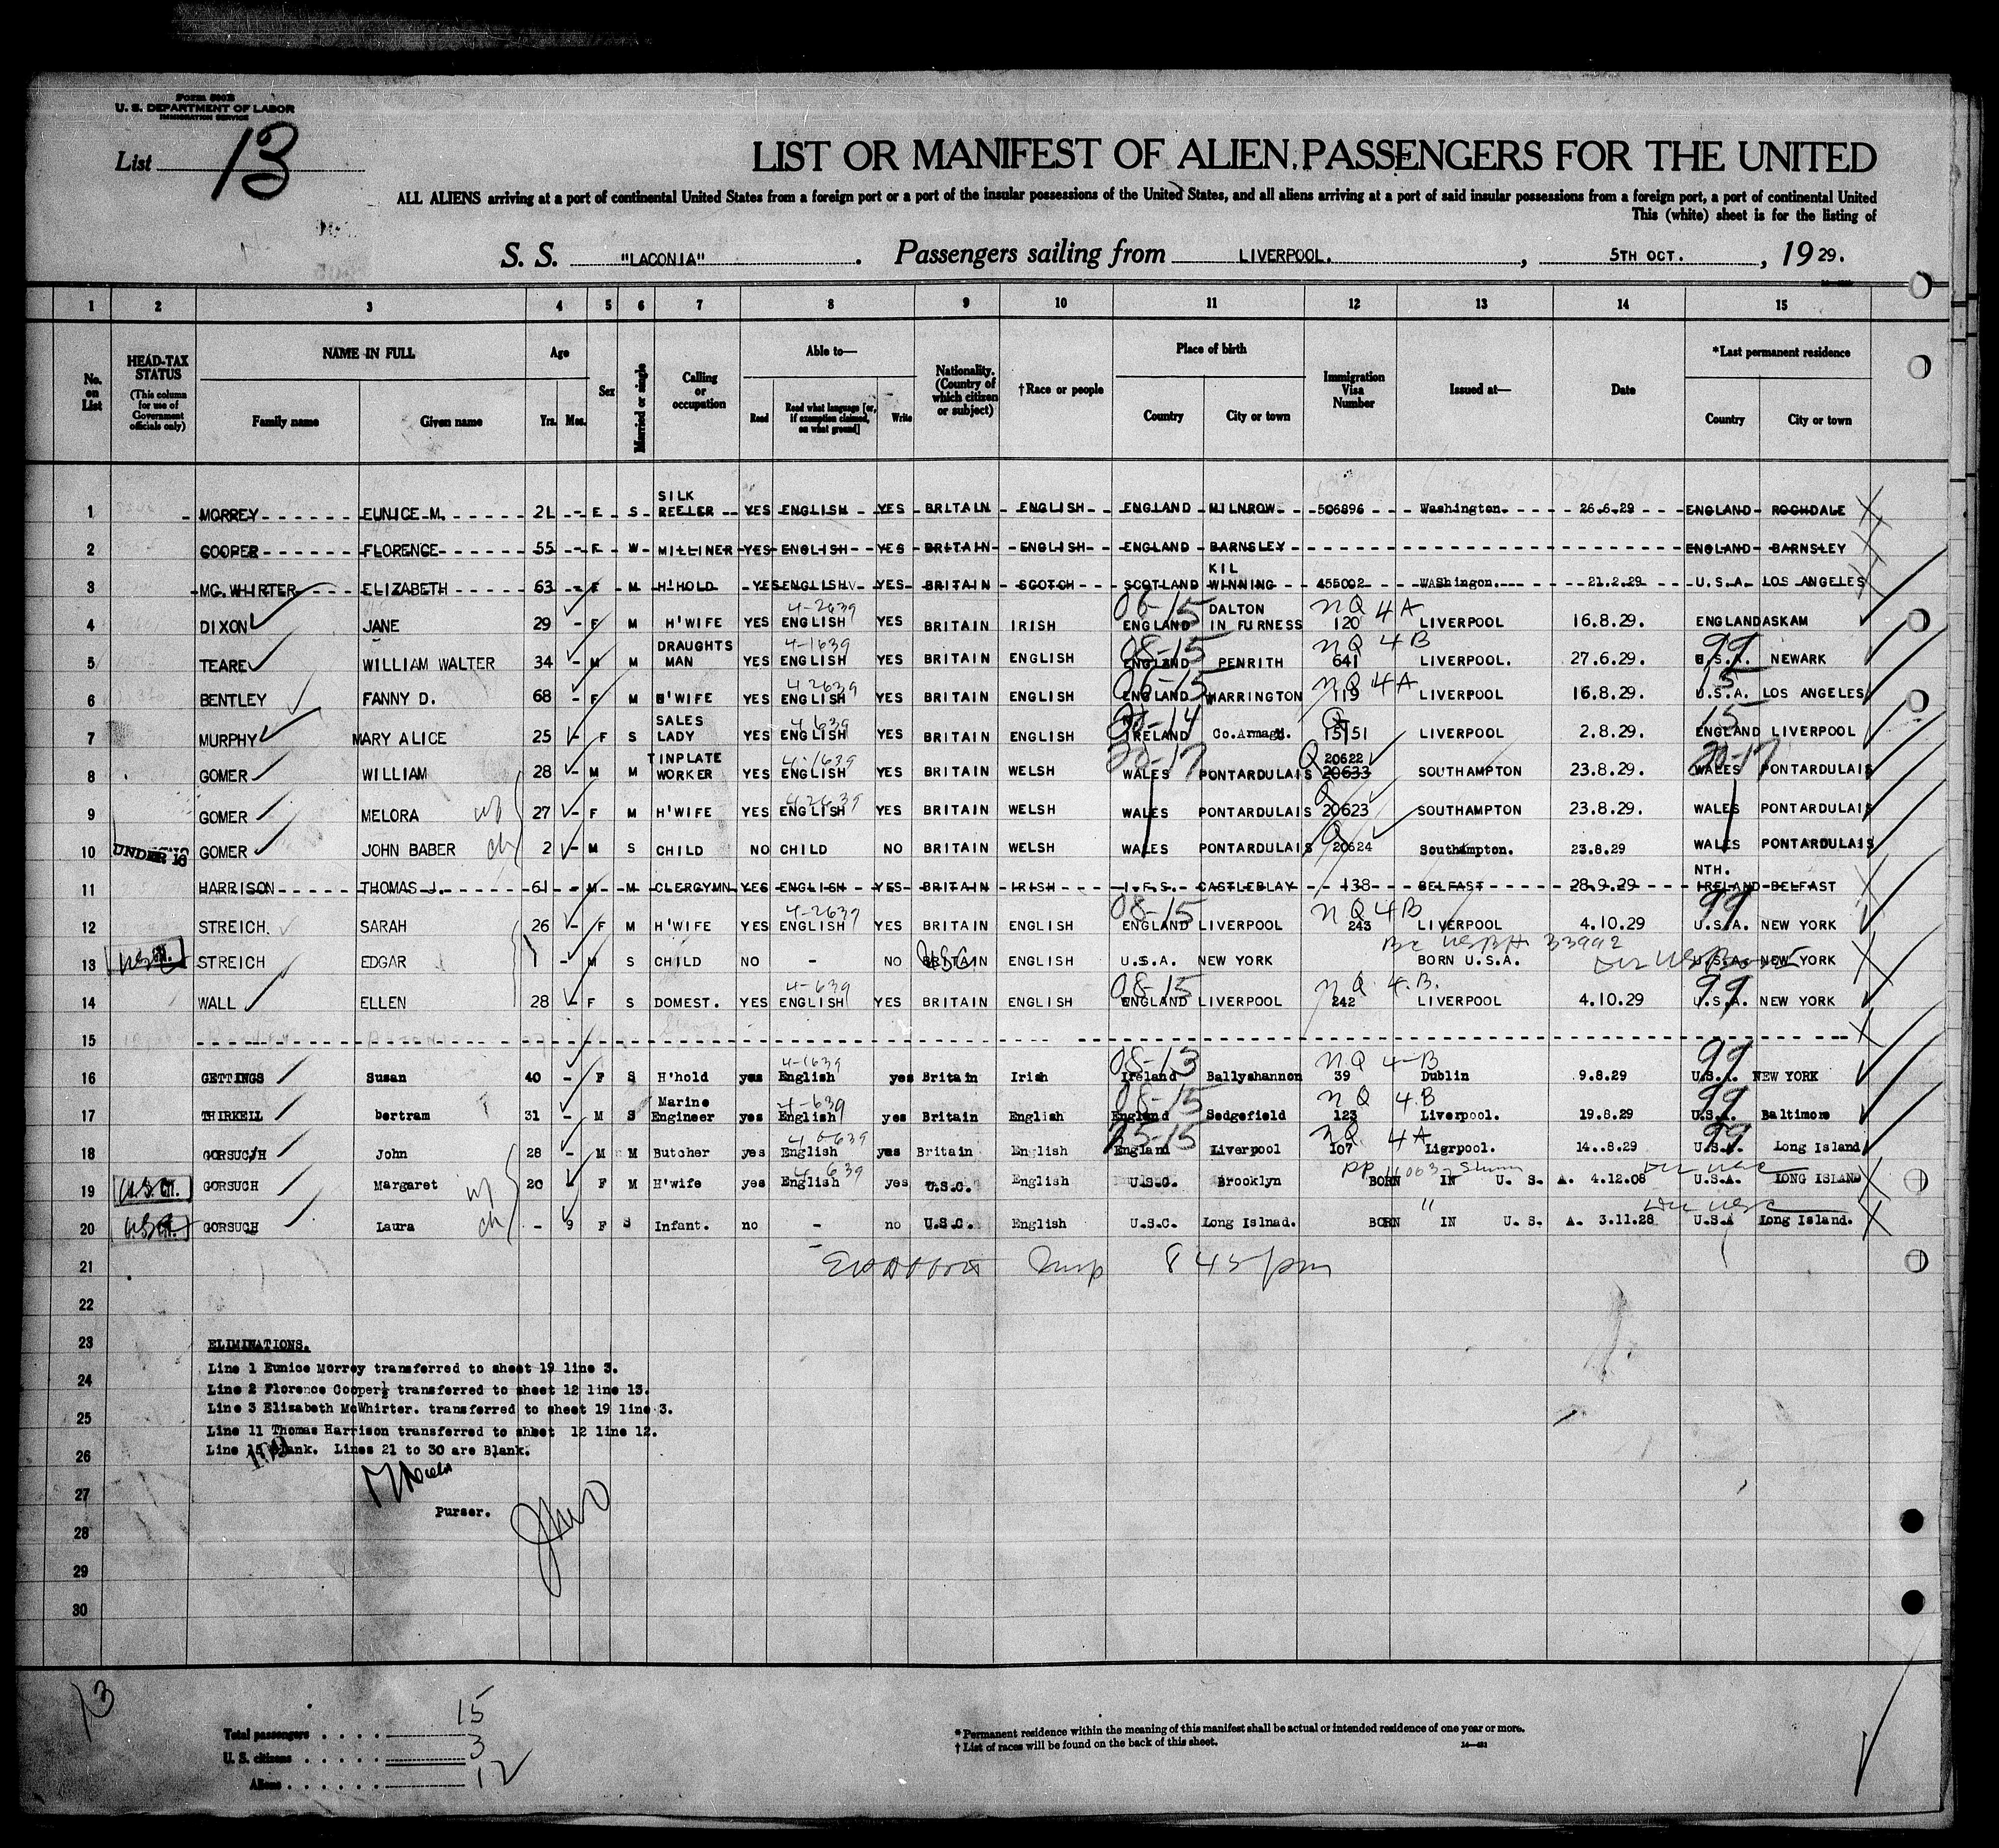 Form 500B
U. S. DEPARTMENT OF LABOR
IMMIGRATION SERVICE
List 13
LIST OR MANIFEST OF ALIEN PASSENGERS FOR THE UNITED
ALL ALIENS arriving at a port of continental United States from a foreign port or a port of the insular possessions of the United States, and all aliens arriving at a port of said insular possessions from a foreign port, a port of continental United
This (white) sheet is for the listing of
S. S. "LACONIA" . Passengers sailing from LIVERPOOL. , 5TH OCT. , 19 29.
1 2 3 4 5 6 7 8 9 10 11 12 13 14 15
No. on List
HEAD-TAX STATUS (This column for use of Government officials only)
NAME IN FULL Family name Given name
Age Yrs. Mos.
Sex
Married or single
Calling or occupation
Able to— Read Read what language [or, if exemption claimed, on what ground] Write
Nationality. (Country of which citizen or subject)
†Race or people
Place of birth Country City or town
Immigration Visa Number
Issued at—
Date
*Last permanent residence Country City or town
1 MORREY EUNICE M. 21 - F S SILK REELER YES ENGLISH YES BRITAIN ENGLISH ENGLAND MILNROW 506896 Washington. 26.6.29 ENGLAND ROCHDALE
2 COOPER FLORENCE 55 - F W MILLINER YES ENGLISH YES BRITAIN ENGLISH ENGLAND BARNSLEY ENGLAND BARNSLEY
3 MC.WHIRTER ELIZABETH 63 - F M H'HOLD YES ENGLISH YES BRITAIN SCOTCH SCOTLAND KIL WINNING 455002 WAShingon. 21.2.29 U.S.A. LOS ANGELES
4-2639 06-15 NQ 4A
4 DIXON JANE 29 - F M H'WIFE YES ENGLISH YES BRITAIN IRISH ENGLAND DALTON IN FURNESS 120 LIVERPOOL 16.8.29. ENGLAND ASKAM
4-1639 08-15 NQ 4B 99
5 TEARE WILLIAM WALTER 34 - M M DRAUGHTS MAN YES ENGLISH YES BRITAIN ENGLISH ENGLAND PENRITH 641 LIVERPOOL. 27.6.29. U.S.A. NEWARK
4 2639 06-15 NQ 4A 15
6 BENTLEY FANNY D. 68 - F M H'WIFE YES ENGLISH YES BRITAIN ENGLISH ENGLAND WARRINGTON 119 LIVERPOOL 16.8.29. U.S.A. LOS ANGELES
4 639 Q 15
7 MURPHY MARY ALICE 25 - F S SALES LADY YES ENGLISH YES BRITAIN ENGLISH IRELAND Co.Armagh. 15151 LIVERPOOL 2.8.29. ENGLAND LIVERPOOL
4-1639 20-17 Q 20622 20-17
8 GOMER WILLIAM 28 - M M TINPLATE WORKER YES ENGLISH YES BRITAIN WELSH WALES PONTARDULAIS 20633 SOUTHAMPTON 23.8.29. WALES PONTARDULAIS
4 2639 Q
9 GOMER MELORA wf 27 - F M H'WIFE YES ENGLISH YES BRITAIN WELSH WALES PONTARDULAIS 20623 SOUTHAMPTON 23.8.29. WALES PONTARDULAIS
10 UNDER 16 GOMER JOHN BABER ch 2 - M S CHILD NO CHILD NO BRITAIN WELSH WALES PONTARDULAIS Q 20624 Southampton. 23.8.29 WALES PONTARDULAIS
11 HARRISON THOMAS J. 61 - M M CLERGYMN YES ENGLISH YES BRITAIN IRISH I.F.S. CASTLEBLAY 138 BELFAST 28.9.29 NTH. IRELAND BELFAST
4-2639 08-15 NQ 4B 99
12 STREICH. SARAH 26 - F M H'WIFE YES ENGLISH YES BRITAIN ENGLISH ENGLAND LIVERPOOL 243 LIVERPOOL 4.10.29 U.S.A. NEW YORK
33992
13 STREICH EDGAR 1 - M S CHILD NO - NO BRITAIN USC ENGLISH U.S.A. NEW YORK BORN U.S.A. U.S.A. NEW YORK
4-639 08-15 NQ 4.B. 99
14 WALL ELLEN 28 - F S DOMEST. YES ENGLISH YES BRITAIN ENGLISH ENGLAND LIVERPOOL 242 LIVERPOOL 4.10.29 U.S.A. NEW YORK
15
4-1639 08-13 NQ 4-B 99
16 GETTINGS Susan 40 - F S H'hold yes English yes Britain Irish Ireland Ballyshannon 39 Dublin 9.8.29 U.S.A. NEW YORK
4-639 08-15 NQ 4B 99
17 THIRKELL bertram 31 - M S Marine Engineer yes English yes Britain English England Sedgefield 123 Liverpool. 19.8.29 U.S.A. Baltimore
NQ 4A 99
18 GORSUCH John 28 - M M Butcher yes English yes Britain English England Liverpool 107 Ligrpool. 14..8.29 U.S.A. Long Island
4 639
19 U.S. Cit. GORSUCH Margaret wf 20 F M H'wife yes English yes U.S.C. English U.S.C. Brooklyn BORN IN U. S. A. 4.12.08 U.S.A. LONG ISLAND
20 GORSUCH Laura ch - 9 F S Infant. no - no U.S.C. English U.S.C. Long Islnad. BORN IN U. S. A. 3.11.28 U.S.A Long Island.
21 8 45 pm
22
23 ELIMINATIONS.
Line 1 Eunice Morrey transferred to sheet 19 line 3.
24 Line 2 Florence Cooper transferred to sheet 12 line 13.
25 Line 3 Elizabeth McWhirter. transferred to sheet 19 line 3.
Line 11 Thomas Harrison transferred to shhet 12 line 12.
26 Line 15 Blank. Lines 21 to 30 are Blank.
27
Purser.
28
29
30
13
Total passengers . . . . 15
U. S. citizens . . . . . 3
Aliens . . . . . . 12
* Permanent residence within the meaning of this manifest shall be actual or intended residence of one year or more.
† List of races will be found on the back of this sheet.